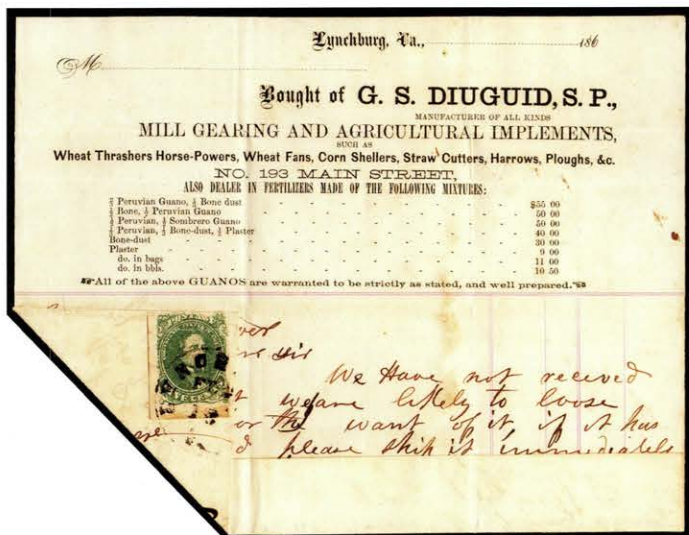 Lynchburg, Va., 186
M
Bought of G. S. DIUGUID, S. P.,
MANUFACTURER OF ALL KINDS
MILL GEARING AND AGRICULTURAL IMPLEMENTS,
SUCH AS
Wheat Thrashers Horse-Powers, Wheat Fans, Corn Shellers, Straw Cutters, Harrows, Ploughs, &c.
NO. 193 MAIN STREET,
ALSO DEALER IN FERTILIZERS MADE OF THE FOLLOWING MIXTURES:
Peruvian Guano, Bone dust $55 00
Bone, Peruvian Guano 50 00
Peruvian, Sombrero Guano 50 00
Peruvian, Bone-dust, Plaster 40 00
Bone-dust 30 00
Plaster 9 00
do. in bags 11 00
do. in bbls. 10 50
All of the above GUANOS are warranted to be strictly as stated, and well prepared.
sir
We Have not receved
we are likely to loose
or the want of it if it has
please ship it immediatele